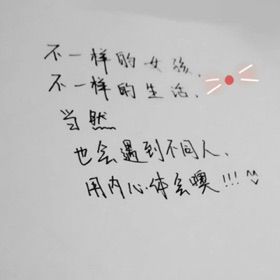 不一样的女孩.
不一样的生活.
当然
也会遇到不同人.
用内心体会噢!!!